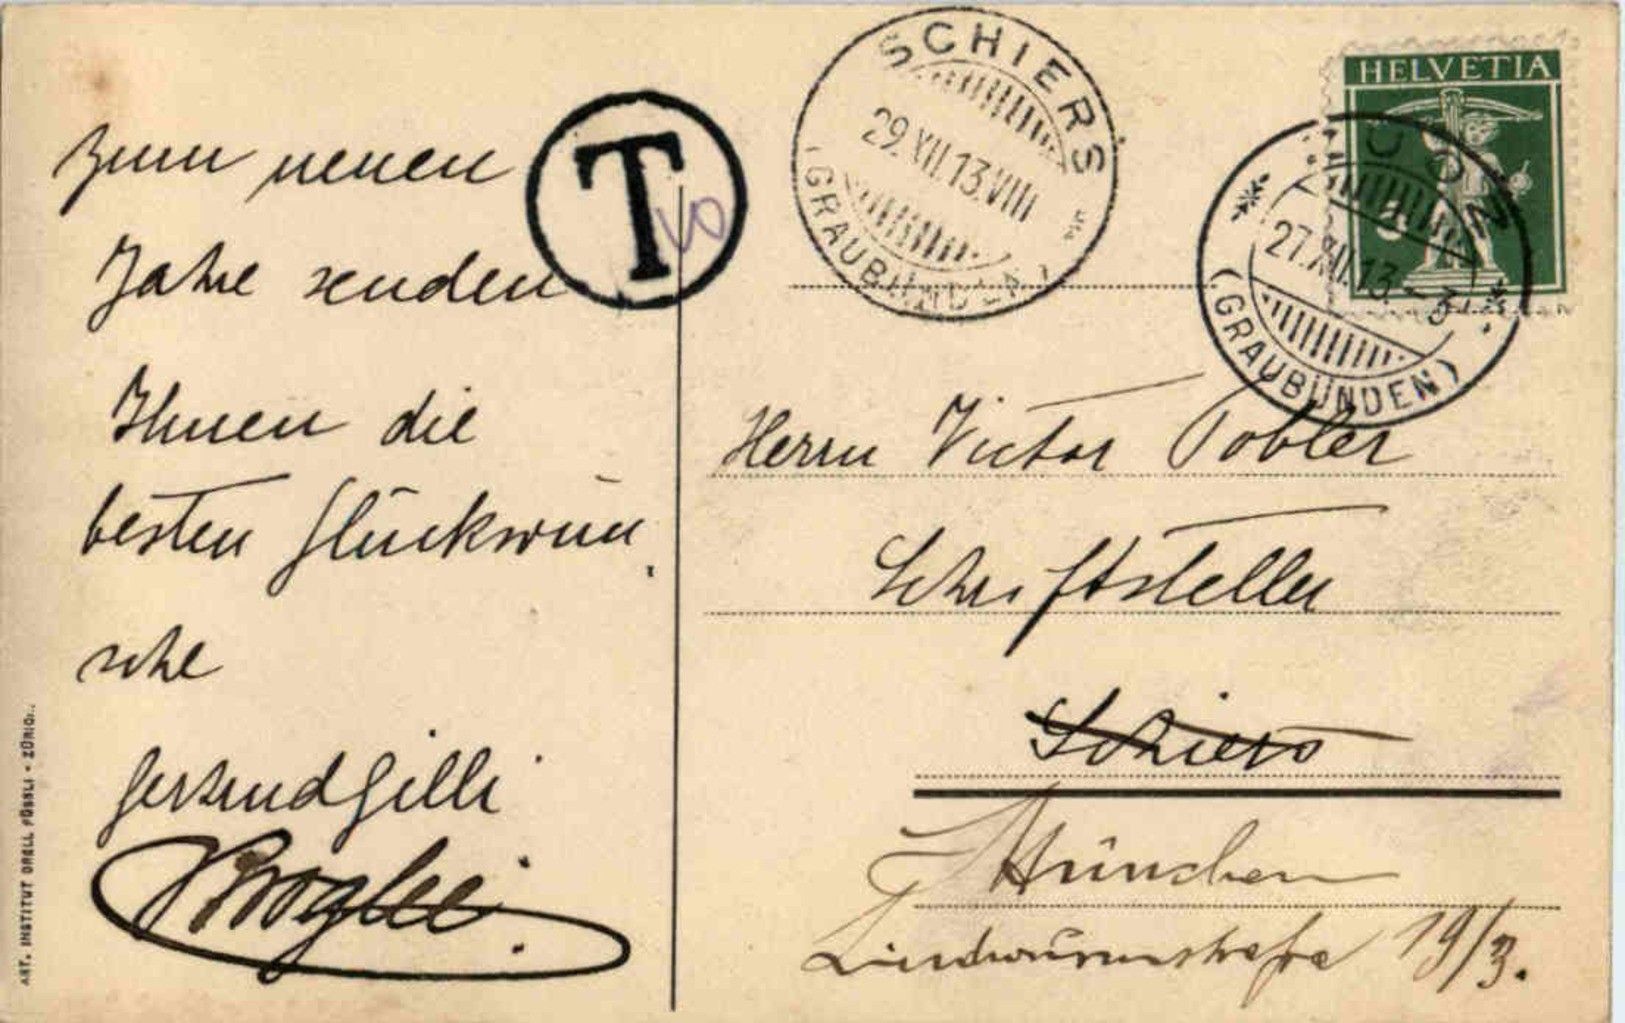 Zum neuen
Jahre senden
Ihnen die
besten Glückwün
sche
Gertrud Gilli
T
10
SCHIERS
29.XII.13.VIII
(GRAUBÜNDEN)
HELVETIA
27.XII.13.-3
(GRAUBÜNDEN)
Herrn Victor Tobler
Schriftsteller
Schiers
München
Lindwurmstraße 19/3.
ART. INSTITUT ORELL FÜSSLI - ZÜRICH.